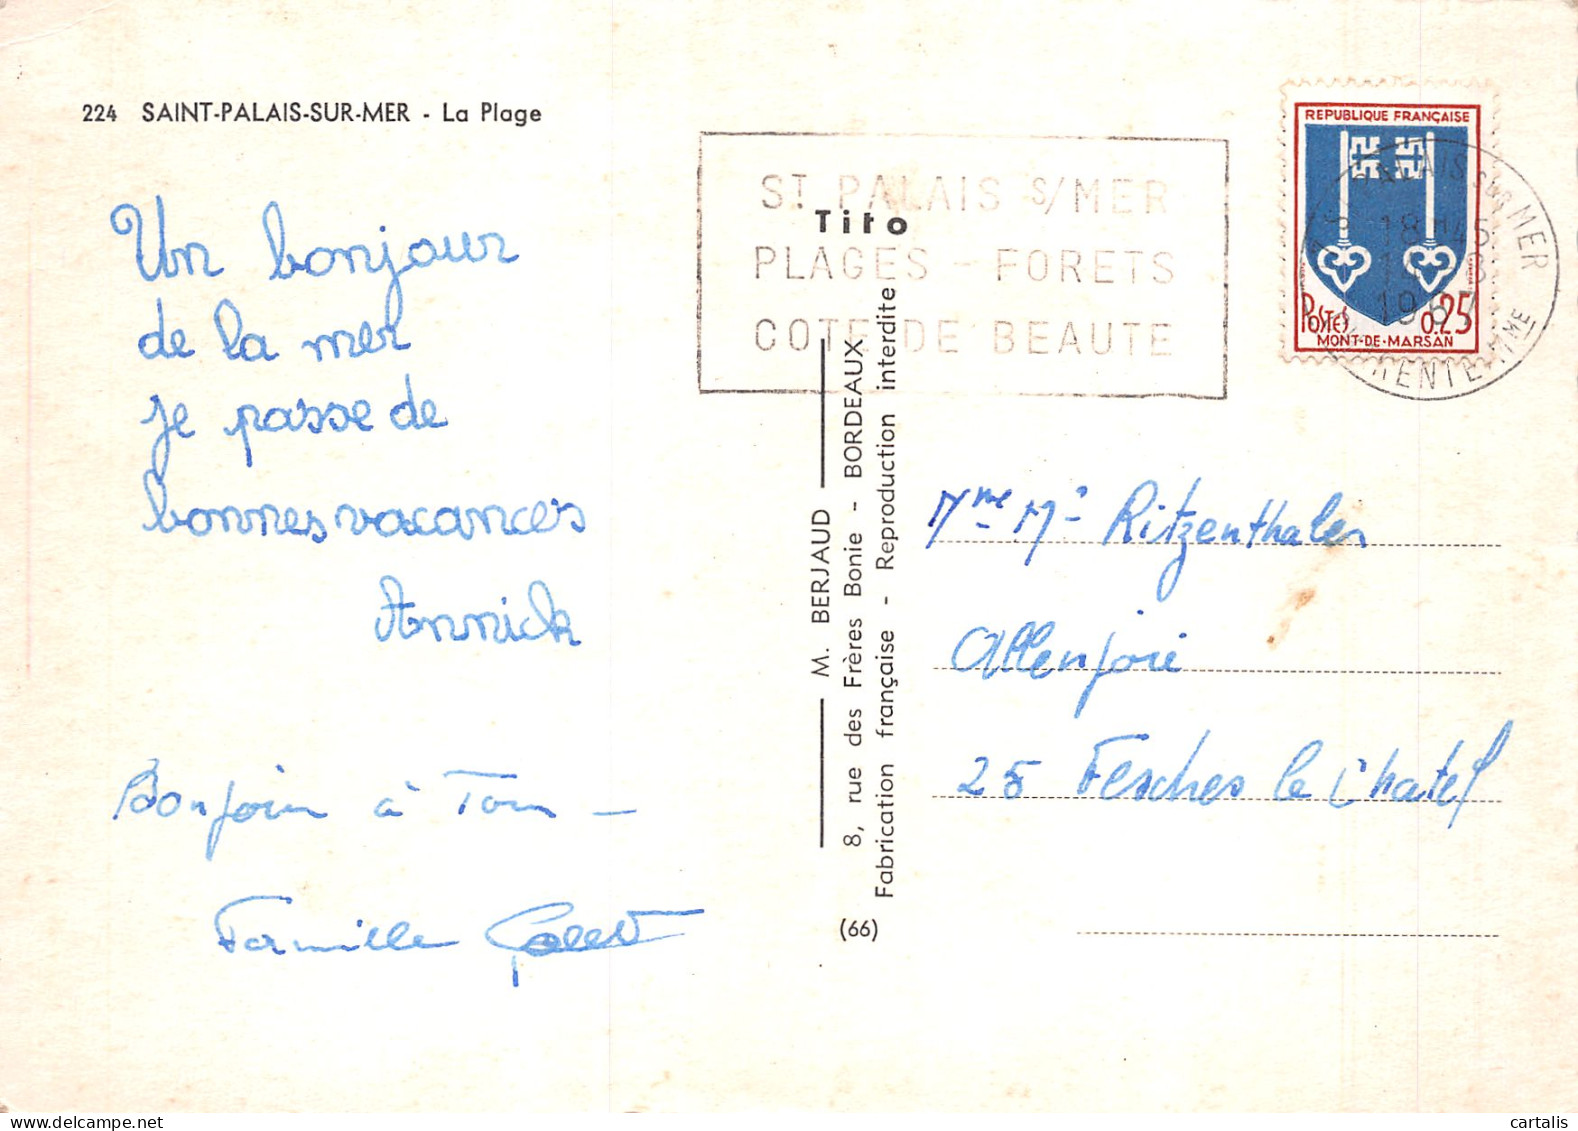 224 SAINT-PALAIS-SUR-MER - La Plage
Un bonjour
de la mer
je passe de
bonnes vacances
Annick
Bonjour à Tous —
Famille
ST PALAIS S/MER
PLAGES - FORETS
COTE DE BEAUTE
Tito
M. BERJAUD
8, rue des Frères Bonie - BORDEAUX
Fabrication française - Reproduction interdite
(66)
REPUBLIQUE FRANÇAISE
POSTES 0.25
MONT-DE-MARSAN
PALAIS SUR MER
1967
Mme Mr Ritzenthaler
Allenjoie
25 Fesches le Chatel
cartalis